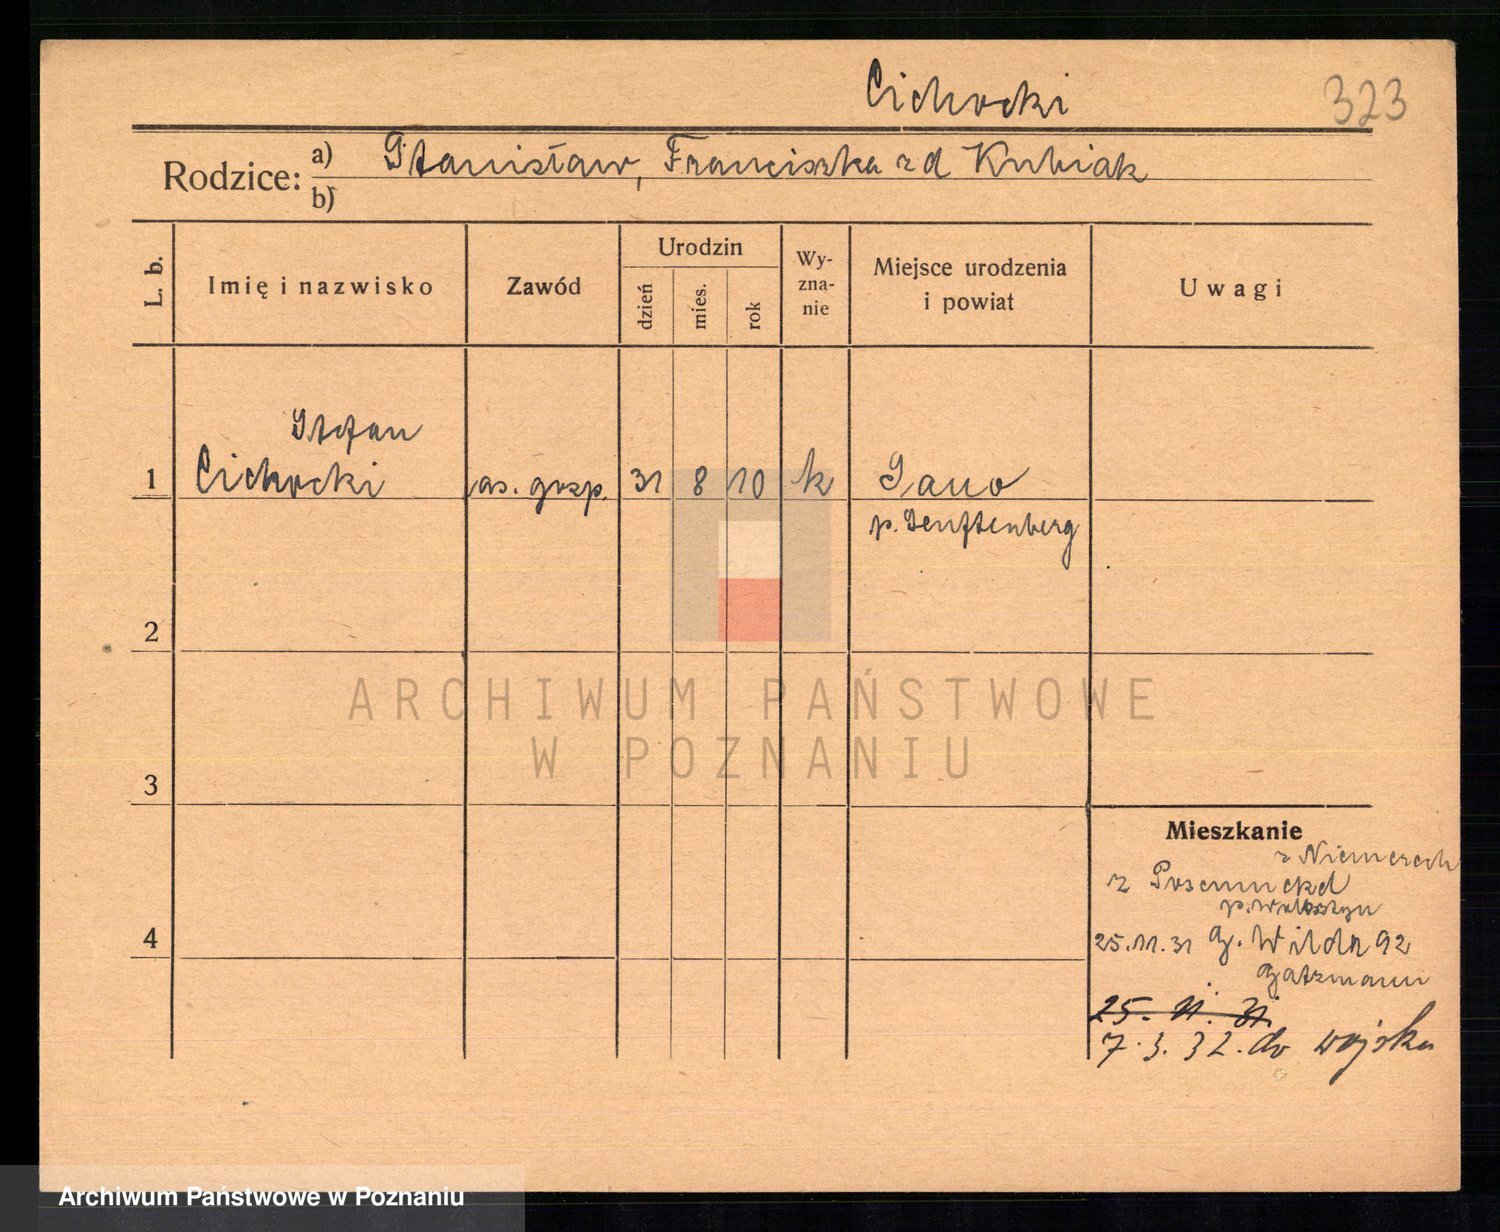 Cichocki
323
Rodzice:
a) Stanisław, Franciszka z d Kubiak
b)
L. b.
Imię i nazwisko
Zawód
Urodzin
dzień
mies.
rok
Wy-
zna-
nie
Miejsce urodzenia
i powiat
Uwagi
Stefan
1 Cichocki as. gosp. 31 8 10 k
p. Senftenberg
2
ARCHIWUM PAŃSTWOWE
W POZNANIU
3
Mieszkanie
Niemczech
z
4
25.11.31 G. Wilda 92
Gatzmann
25. 11. 31.
7. 3. 32. do wojska
Archiwum Państwowe w Poznaniu